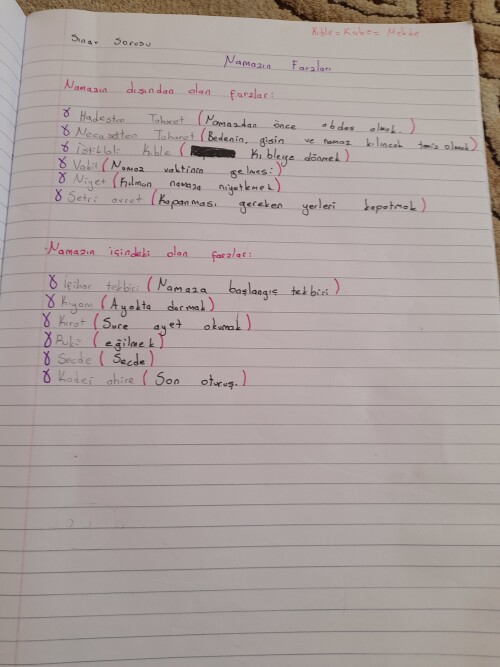 Kıble = Kabe = Mekke
Sınav Sorusu
Namazın Farzları
Namazın dışından olan farzlar:
Hadesten Taharet (Namazdan önce abdes almak.)
Necasetten Taharet (Bedenin, gisin ve namaz kılıncak temiz olmak)
İstikbli Kıble ( Kıbleye dönmek)
Vakit (Namaz vaktinin gelmesi)
Niyet (Kılınan namaza niyetlemek)
Setri avret (Kapanması gereken yerleri kapatmak)
Namazın içindeki olan farzlar:
İçihar tekbiri (Namaza başlangıç tekbiri)
Kıyam (Ayakta durmak)
Kırat (Sure ayet okumak)
Rukü (eğilmek)
Secde (Secde)
Kadei ahire (Son oturuş.)